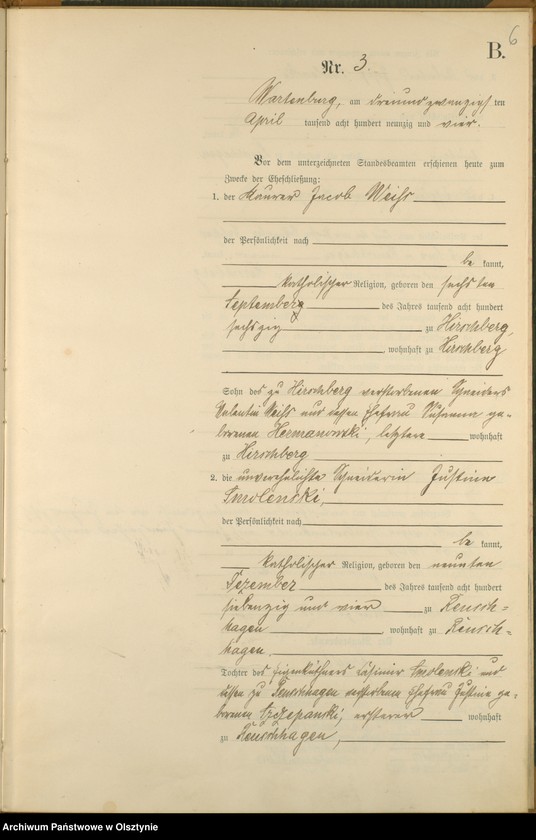 6
B.
Nr. 3.
Wartenburg, am dreiundzwanzigsten
April tausend acht hundert neunzig und vier.
Vor dem unterzeichneten Standesbeamten erschienen heute zum
Zwecke der Eheschließung:
1. der Maurer Jacob Weiss
der Persönlichkeit nach
be kannt,
katholischer Religion, geboren den sechsten
September des Jahres tausend acht hundert
sechszig zu Hirschberg,
wohnhaft zu Hirschberg
Sohn des zu Hirschberg verstorbenen Schneiders
Valentin Weiss und dessen Ehefrau Susanna ge-
borenen Hermanowski, letztere wohnhaft
zu Hirschberg
2. die unverehelichte Schneiderin Justina
Smolenski,
der Persönlichkeit nach
be kannt,
katholischer Religion, geboren den neunten
Dezember des Jahres tausend acht hundert
siebenzig und vier zu Reusch-
hagen wohnhaft zu Reusch-
hagen.
Tochter des Eigenkäthners Casimir Smolenski und
dessen zu Reuschhagen verstorbenen Ehefrau Justina ge-
borenen Szczepanski, ersterer wohnhaft
zu Reuschhagen,
Archiwum Państwowe w Olsztynie